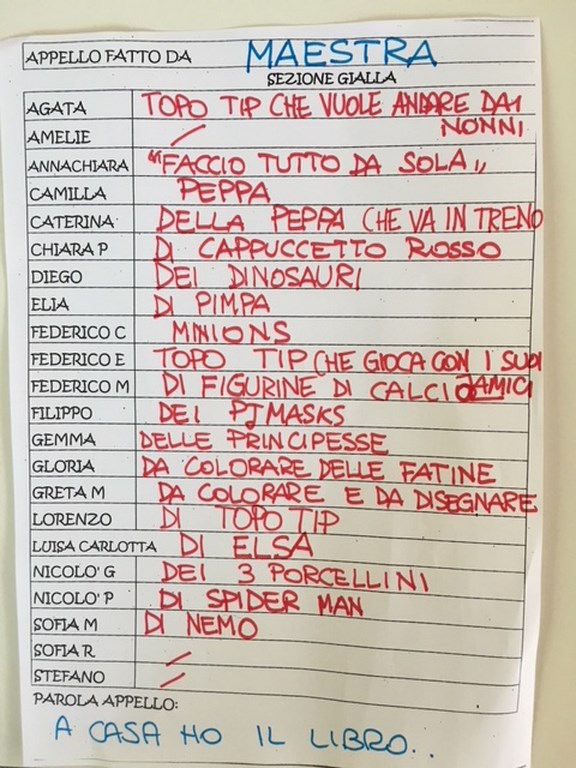 APPELLO FATTO DA MAESTRA
SEZIONE GIALLA
AGATA TOPO TIP CHE VUOLE ANDARE DAI
NONNI
AMELIE /
ANNACHIARA "FACCIO TUTTO DA SOLA"
CAMILLA PEPPA
CATERINA DELLA PEPPA CHE VA IN TRENO
CHIARA P DI CAPPUCCETTO ROSSO
DIEGO DEI DINOSAURI
ELIA DI PIMPA
FEDERICO C MINIONS
FEDERICO E TOPO TIP CHE GIOCA CON I SUOI
AMICI
FEDERICO M DI FIGURINE DI CALCIO
FILIPPO DEI PJMASKS
GEMMA DELLE PRINCIPESSE
GLORIA DA COLORARE DELLE FATINE
GRETA M DA COLORARE E DA DISEGNARE
LORENZO DI TOPO TIP
LUISA CARLOTTA DI ELSA
NICOLO' G DEI 3 PORCELLINI
NICOLO' P DI SPIDER MAN
SOFIA M DI NEMO
SOFIA R /
STEFANO /
PAROLA APPELLO:
A CASA HO IL LIBRO..